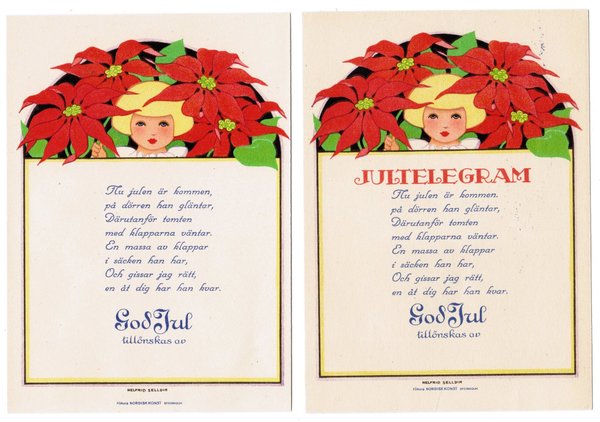 Nu julen är kommen,
på dörren han gläntar,
Därutanför tomten
med klapparna väntar.
En massa av klappar
i säcken han har,
Och gissar jag rätt,
en åt dig har han kvar.
God Jul
tillönskas av
HELFRID SELLDIN
FÖRLAG NORDISK KONST STOCKHOLM
JULTELEGRAM
Nu julen är kommen.
på dörren han gläntar,
Därutanför tomten
med klapparna väntar.
En massa av klappar
i säcken han har,
Och gissar jag rätt,
en åt dig har han kvar.
God Jul
tillönskas av
HELFRID SELLDIN
FÖRLAG NORDISK KONST STOCKHOLM